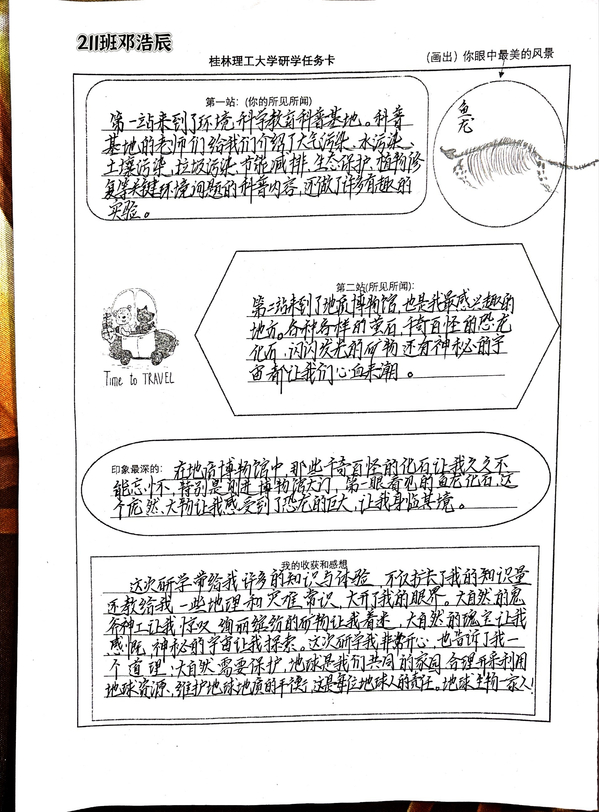 211班邓浩辰
桂林理工大学研学任务卡
（画出）你眼中最美的风景
第一站：(你的所见所闻)
第一站来到了环境科学教育科普基地。科普
基地的老师们给我们介绍了大气污染、水污染、
土壤污染、垃圾污染、节能减排、生态保护、植物修
复等关键环境问题的科普内容，还做了许多有趣的
实验。
鱼龙
第二站(所见所闻)：
第二站来到了地质博物馆，也是我最感兴趣的
地方。各种各样的萤石、千奇百怪的恐龙
化石，闪闪发光的矿物还有神秘的宇
宙都让我们心血来潮。
Time to TRAVEL
印象最深的：
在地质博物馆中，那些千奇百怪的化石让我久久不
能忘怀，特别是刚进博物馆大门，第一眼看见的鱼龙化石，这
个庞然大物让我感受到了恐龙的巨大，让我身临其境。
我的收获和感想
这次研学带给我许多的知识与体验，不仅扩大了我的知识量
还教给我一些地理和灾难常识，大开了我的眼界。大自然的鬼
斧神工让我惊叹，绚丽缤纷的矿物让我着迷，大自然的瑰宝让我
感慨，神秘的宇宙让我探索。这次研学我非常开心，也告诉了我一
个道理：大自然需要保护，地球是我们共同的家园，合理开采利用
地球资源，维护地球地质的平衡，这是每位地球人的责任。地球生物一家人！